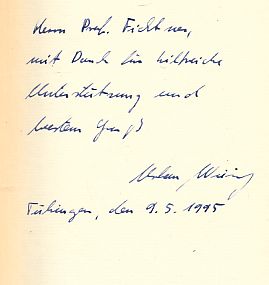 Herrn Prof. Fichtner,
mit Dank für hilfreiche
Unterstützung und
bestem Gruß
Urban Wiesing
Tübingen, den 9.5.1995